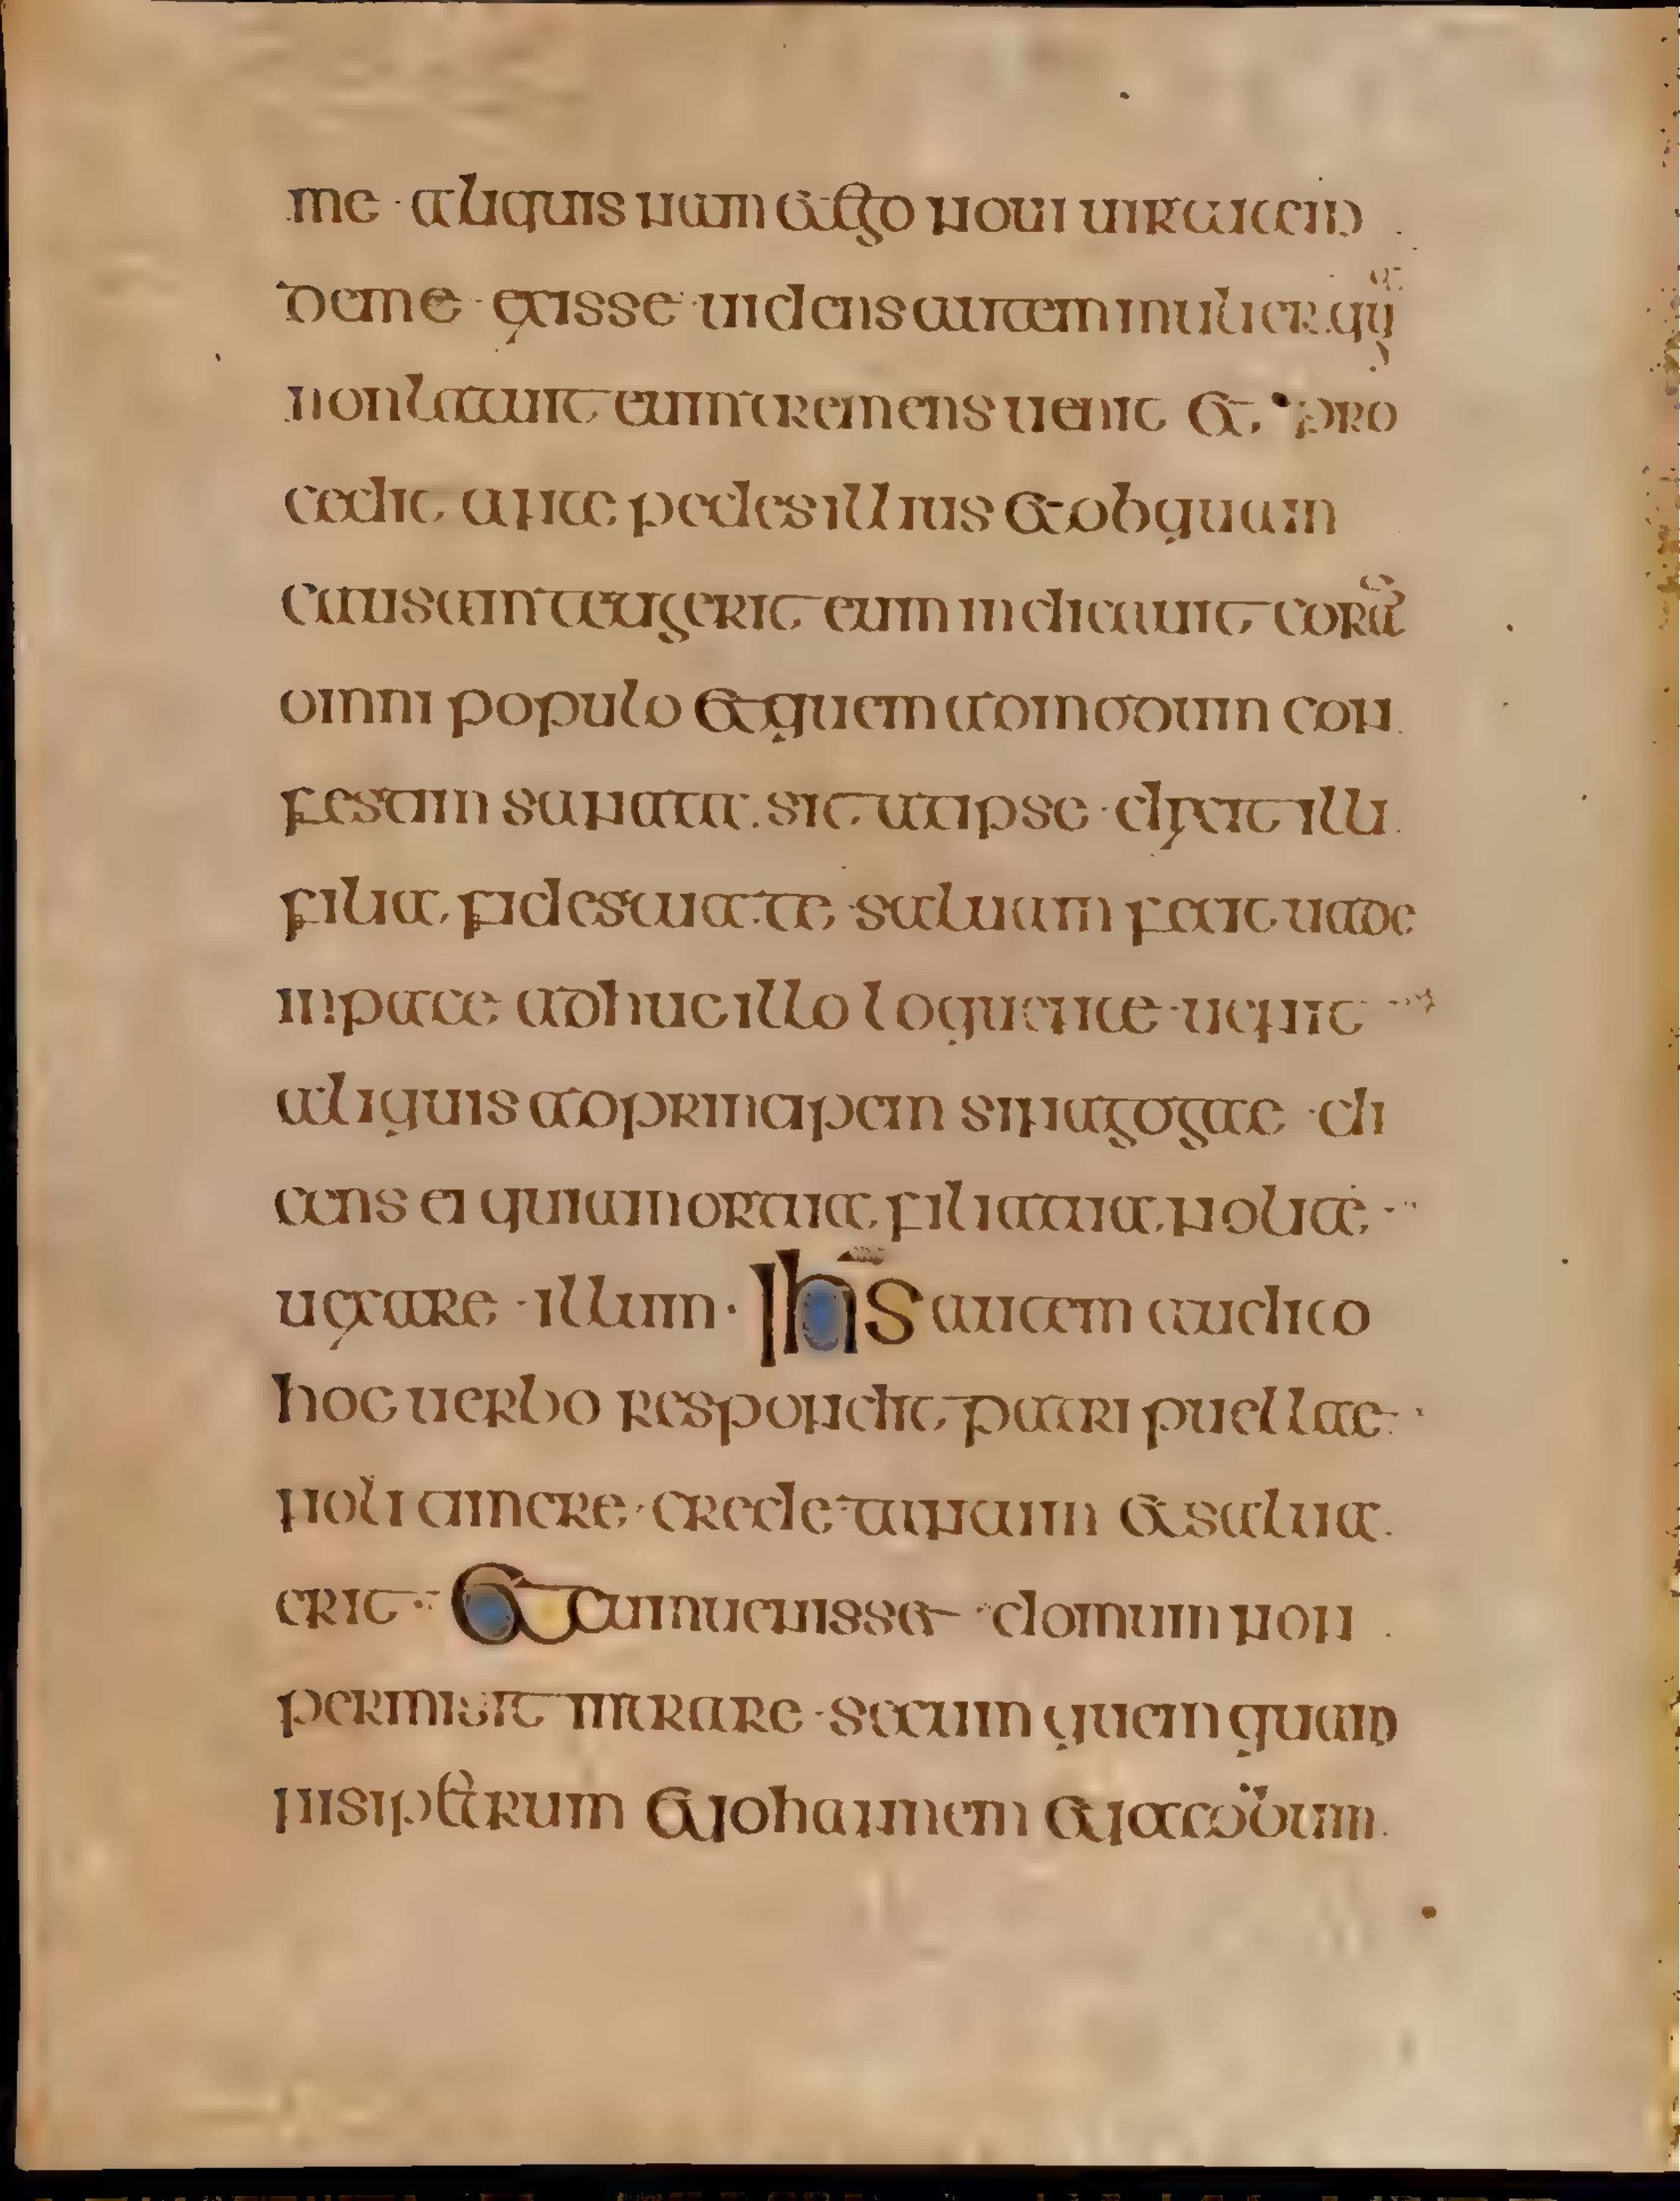 me · aliquis nam & ego noui uirtutem
deme · exisse · uidens autem mulier · quia
non latuit eum tremens uenit & · pro
cedit ante pedes illius & ob quam
causam tetigerit eum indicauit corā
omni populo & quem ad modum con
festim sanata · sit at ipse · dixit illi
filia fides tua te · saluam fecit uade
in pace adhuc illo loquente · uenit
aliquis ad principem sinagogae · di
cens ei quia mortua filia tua noli te
uexare · illum · Ihs autem audito
hoc uerbo respondit patri puellae ·
noli timere · crede tantum & salua
erit · Et cum uenisset · domum non
permisit intrare · secum quemquam
nisi petrum & iohannem & iacobum